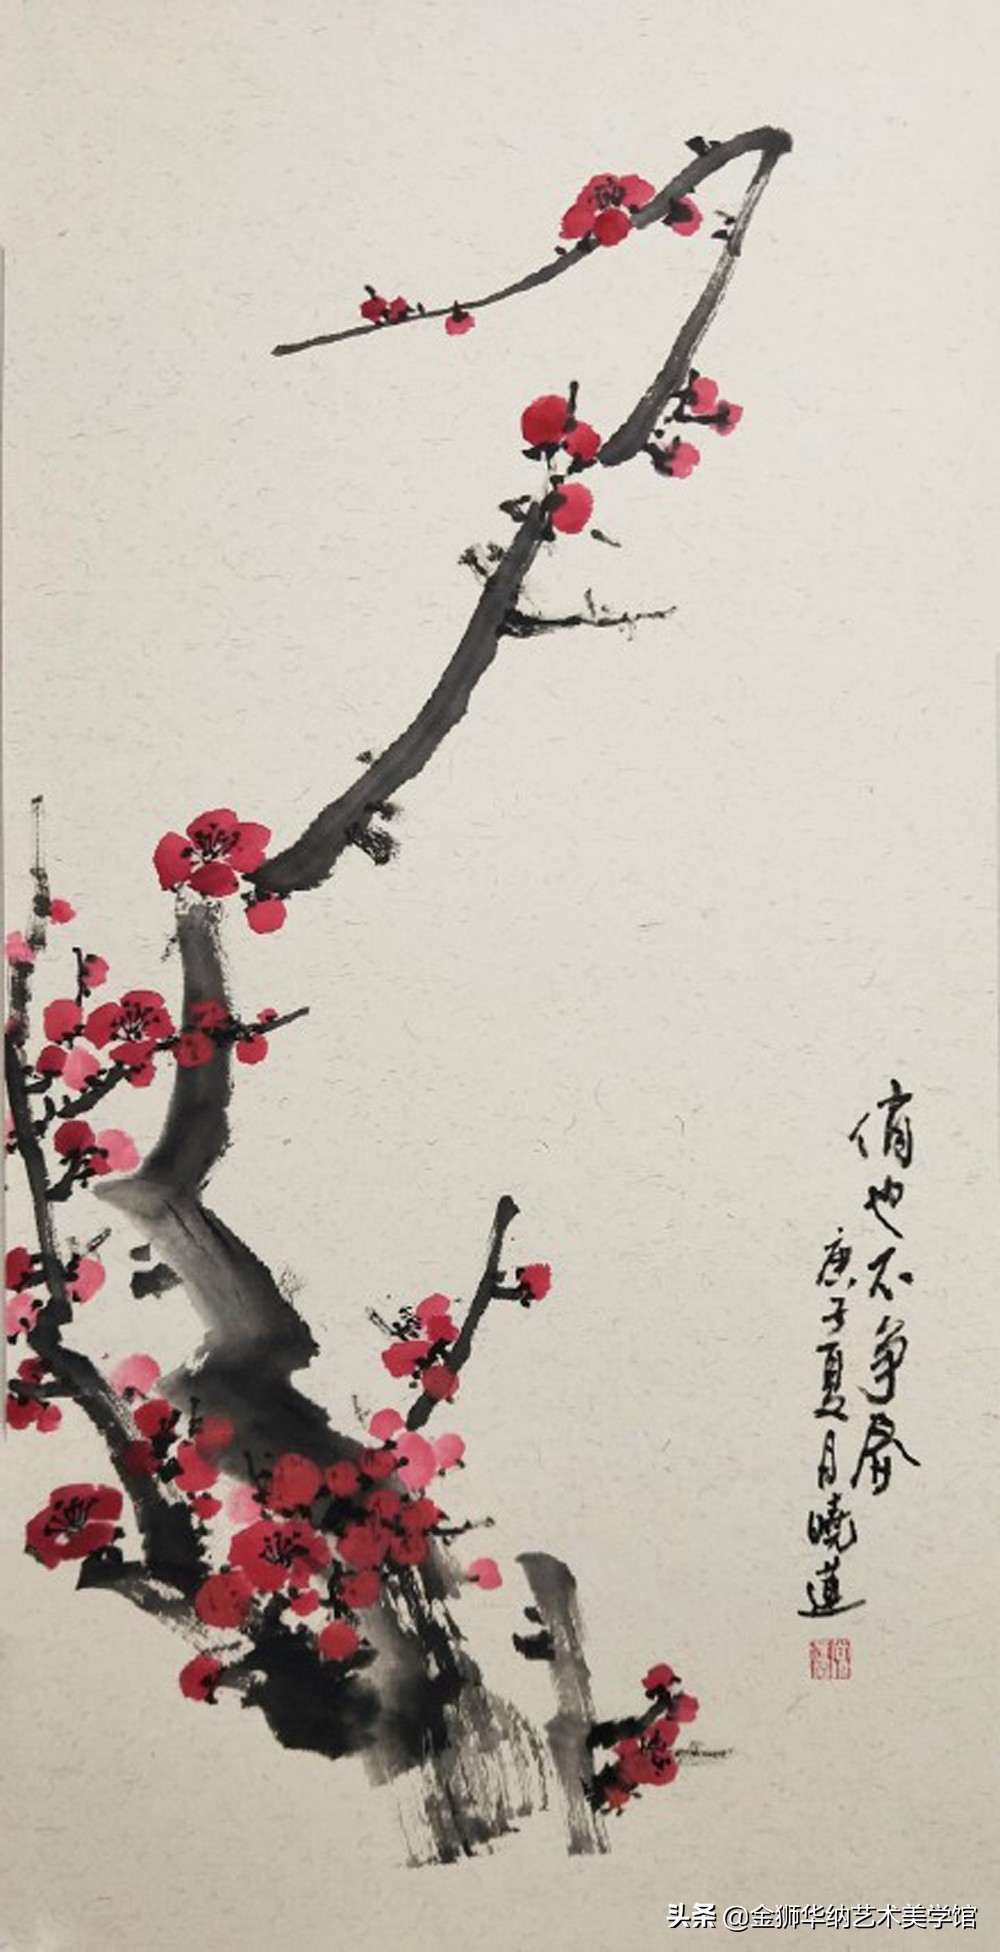 俏也不争春
庚子夏月曉蓮
头条 @金狮华纳艺术美学馆